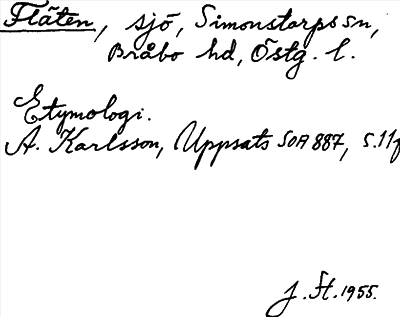 Fläten, sjö, Simonstorps sn,
Bråbo hd, Östg. l.
Etymologi.
A. Karlsson, Uppsats SOA 887, s. 11f
J. St. 1955.